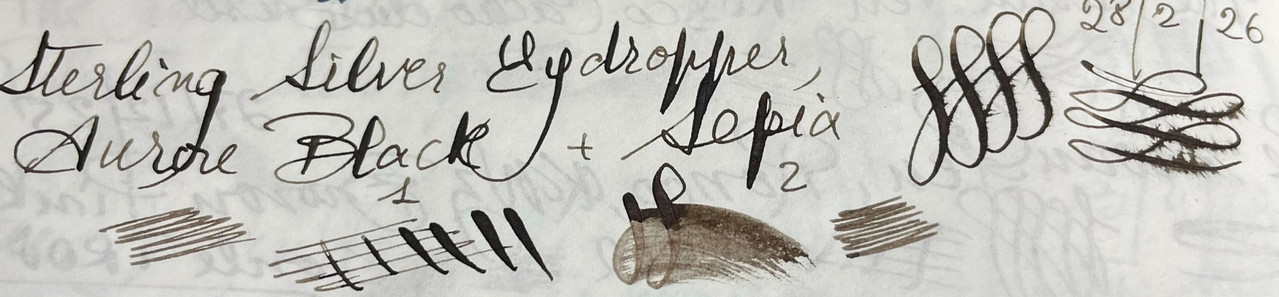 Sterling Silver Eydropper,
Aurore Black + Sepia
1 2
28/2/26